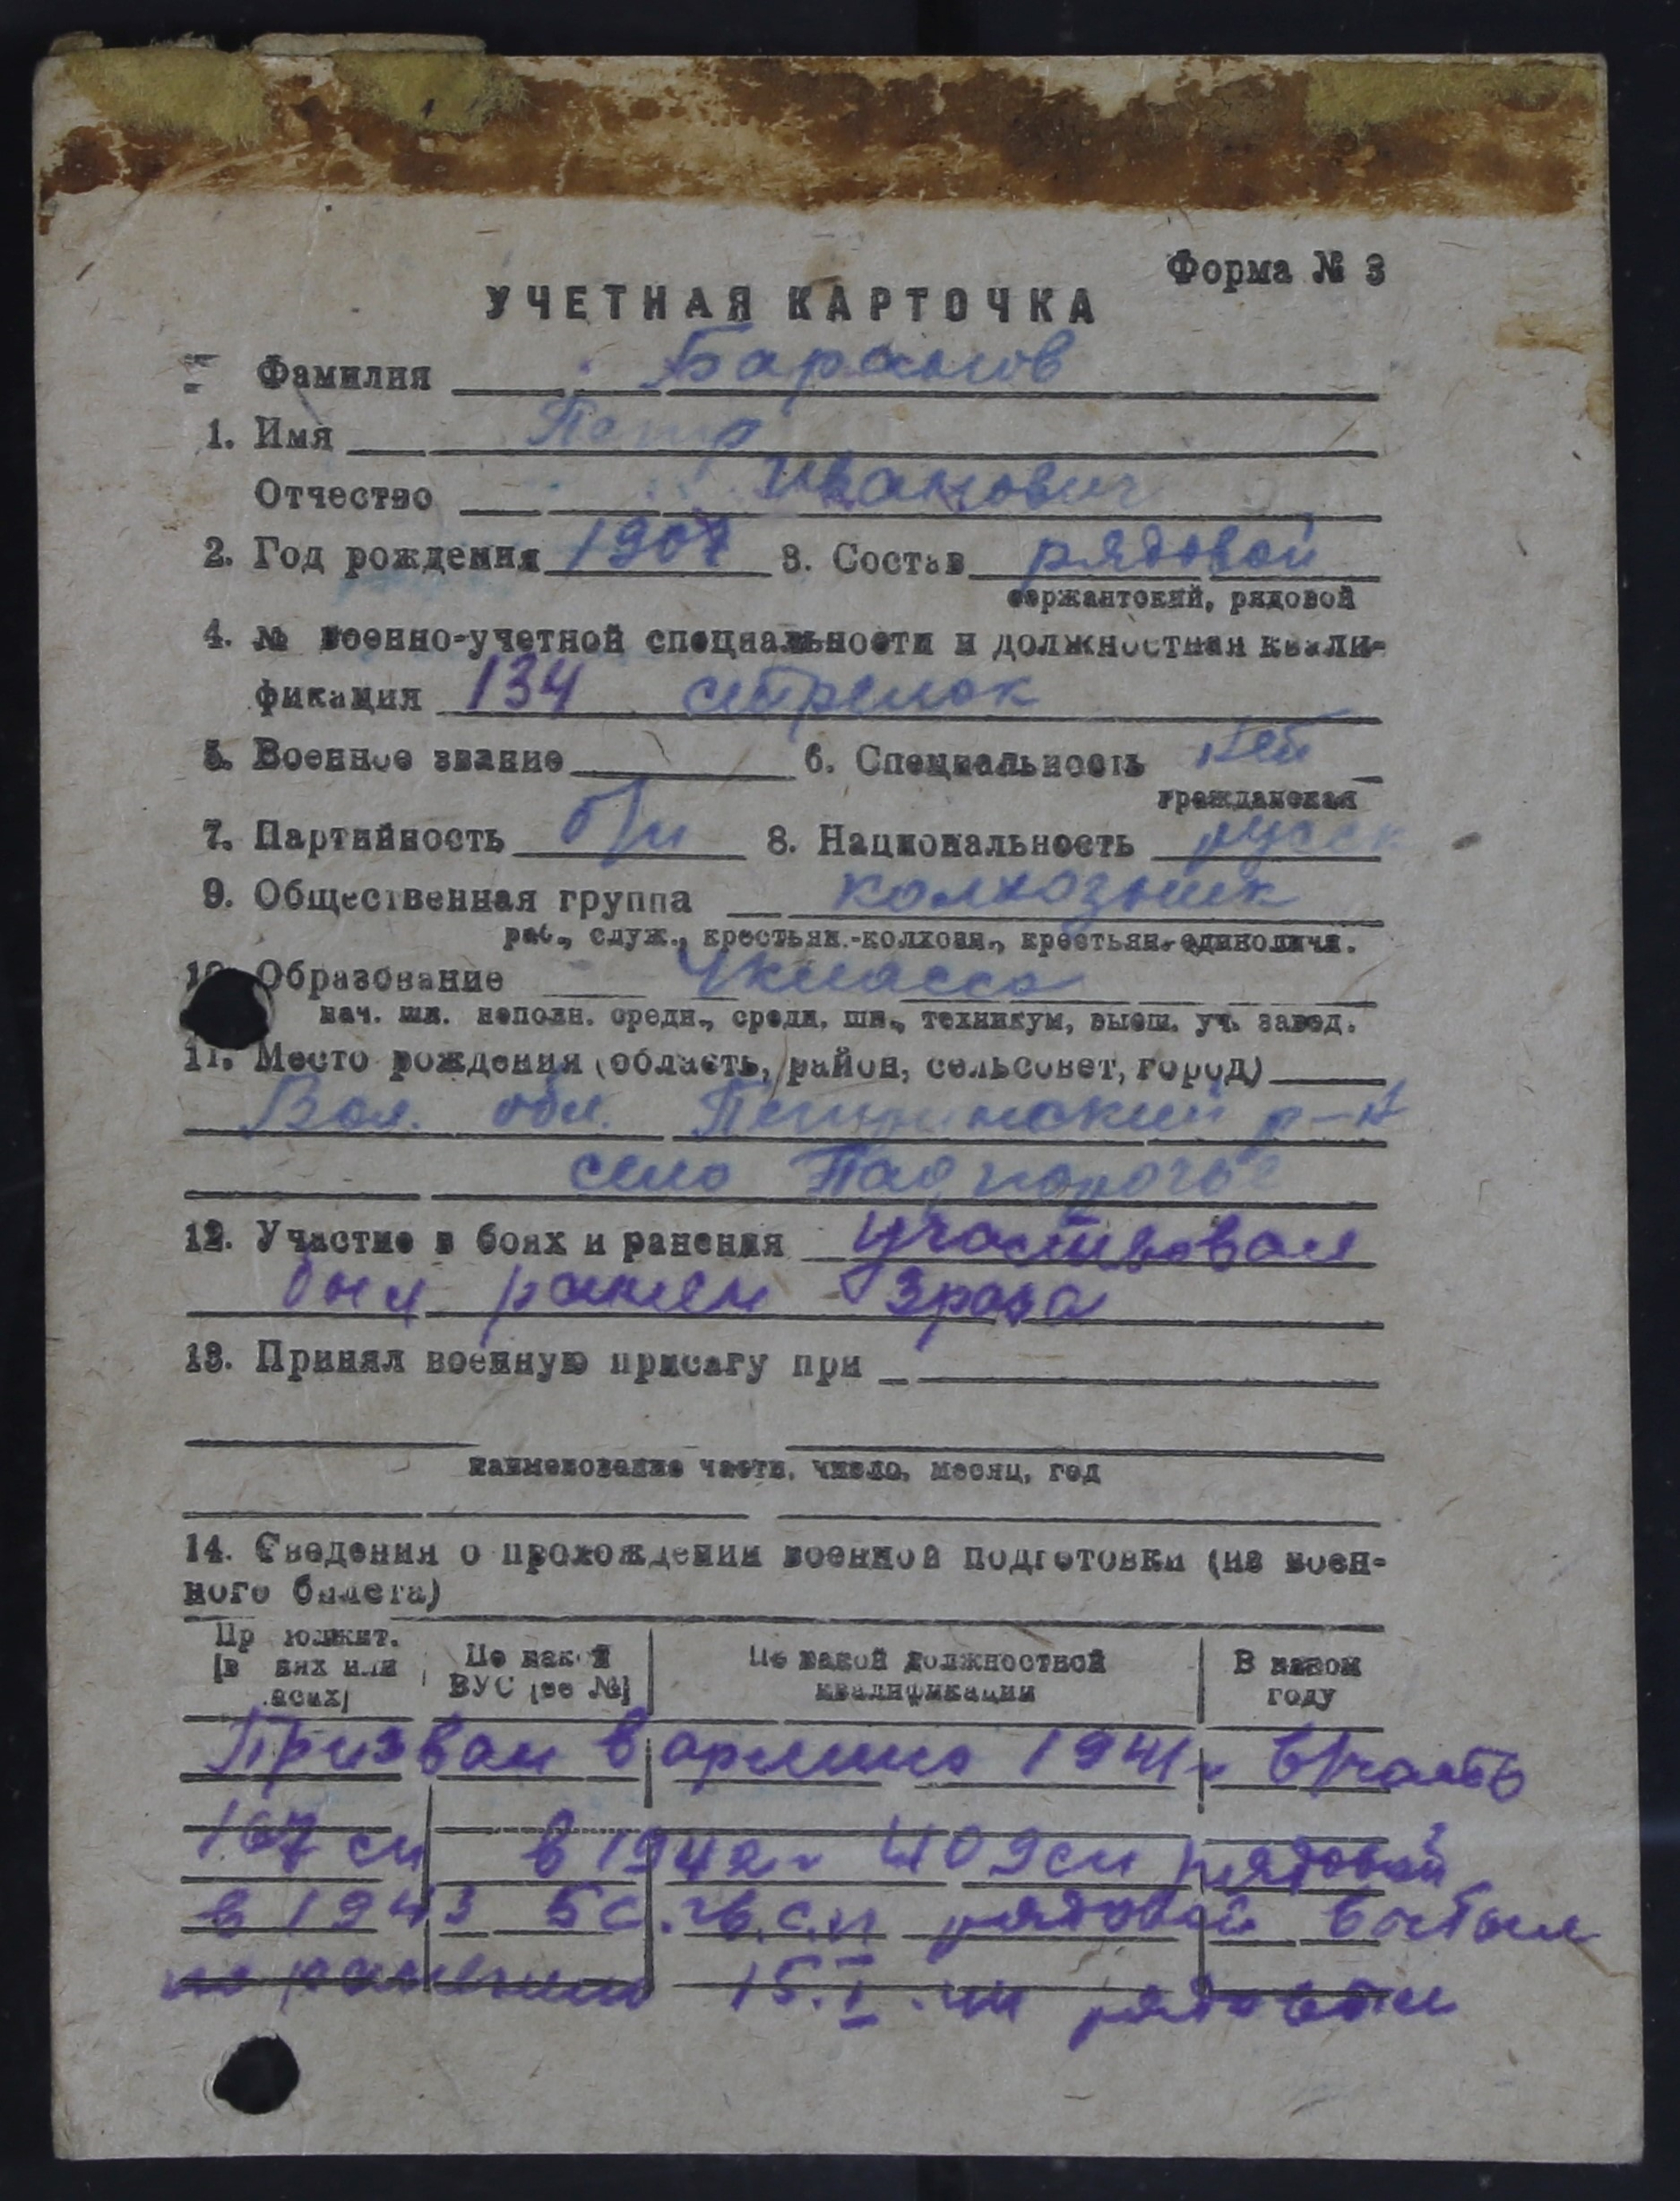 Форма № 3
УЧЕТНАЯ КАРТОЧКА
Фамилия Баранов
1. Имя Петр
Отчество Иванович
2. Год рождения 1907 3. Состав рядовой
сержантский, рядовой
4. № военно-учетной специальности и должностная квали-
фикация 134 стрелок
5. Военное звание 6. Специальность нет
гражданская
7. Партийность б/п 8. Национальность русск
9. Общественная группа колхозник
раб., служ., крестьян.-колхозн., крестьян.-единоличн.
10. Образование 4 класса
нач. шк. неполн. средн., средн. шк., техникум, высш. уч. завед.
11. Место рождения (область, район, сельсовет, город)
Вол. обл. р-н
село Подпорожье
12. Участие в боях и ранения участвовал
был ранен 3 раза
13. Принял военную присягу при
наименование части, число, месяц, год
14. Сведения о прохождении военной подготовки (из воен-
ного билета)
Пр юлжит. По какой По какой должностной В каком
(в нях или ВУС (ее №) квалификации году
асах)
Призван в армию 1941г в/часть
167 сп в 1942г 409 сп рядовой
в 1943 5 с.гв.с.п рядовой выбыл
по ранению 15.I.44 рядовым